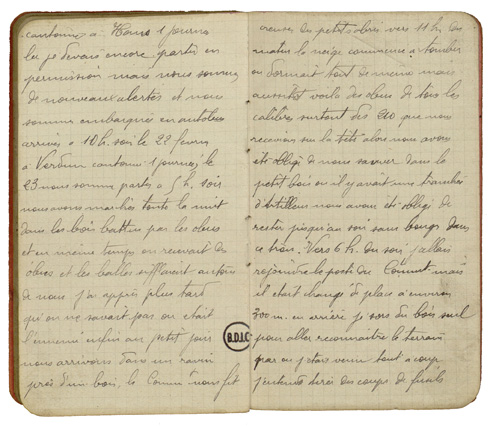 cantonne à Hans 1 journu
lu je devais encore partir en
permission mais nous sommes
de nouveaux alertés et nous
sommes embarquée en autobus
arrivés à 10 h. soir le 22 fevrier
à Verdun cantonné 1 journé, le
23 nous somme partis à 5 h. soir
nous avons marchés toute la nuit
dans les bois battu par les obus
et en même temps on recevait des
obus et les balles sifflaient autour
de nous j'ai appris plus tard
qu'on ne savait pas ou était
l'ennemi enfin au petit jour
nous arrivons dans un ravin
près d'un bois, le Comm nous fit
creuser des petits abris vers 11 h. du
matin la neige commence à tomber
on dormait tout de meme mais
aussitot voila des obus de tous les
calibres surtout des 210 que nous
recevions sur la tête alors nous avons
été obligé de nous sauver dans le
petit bois ou il y avait une tranchée
d'artilleur nous avons été obligé de
rester jusqu'au soir sans bouger dans
ce trou. Vers 6 h. du soir j'allais
rejoindre le poste du Commt mais
il était changé de place à environ
300 m. en arrière je sors du bois seul
pour aller reconnaitre le terrain
par ou j'etais venu tout à coup
j'entends tirer des coups de fusils
B.D.I.C